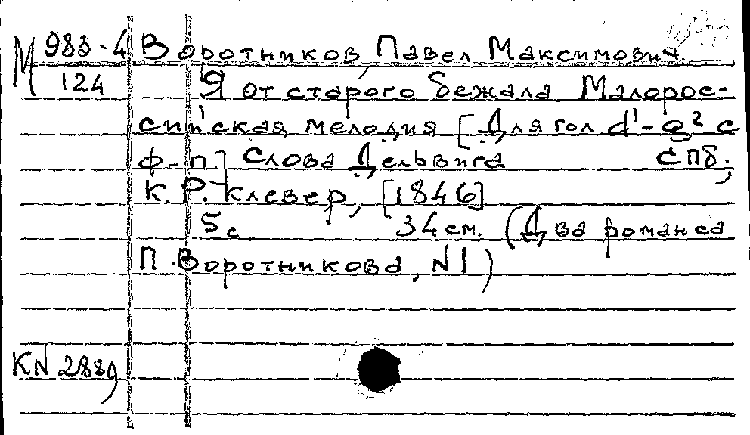 М 983-4 Воротников, Павел Максимович
124 Я от старого бежала Малорос-
сийская мелодия [Для гол. d¹-g² с
ф-п] Слова Дельвига СПб.,
К. Р. Клевер, [1846]
5 с 34 см. (Два романса
П. Воротникова, N 1)
KN 2889